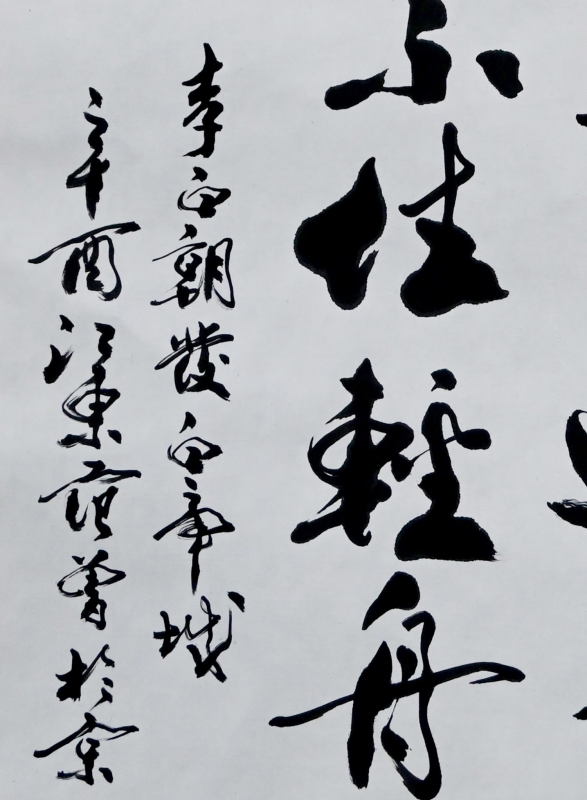 不住輕舟
李白朝發白帝城
辛酉江東范曾於京